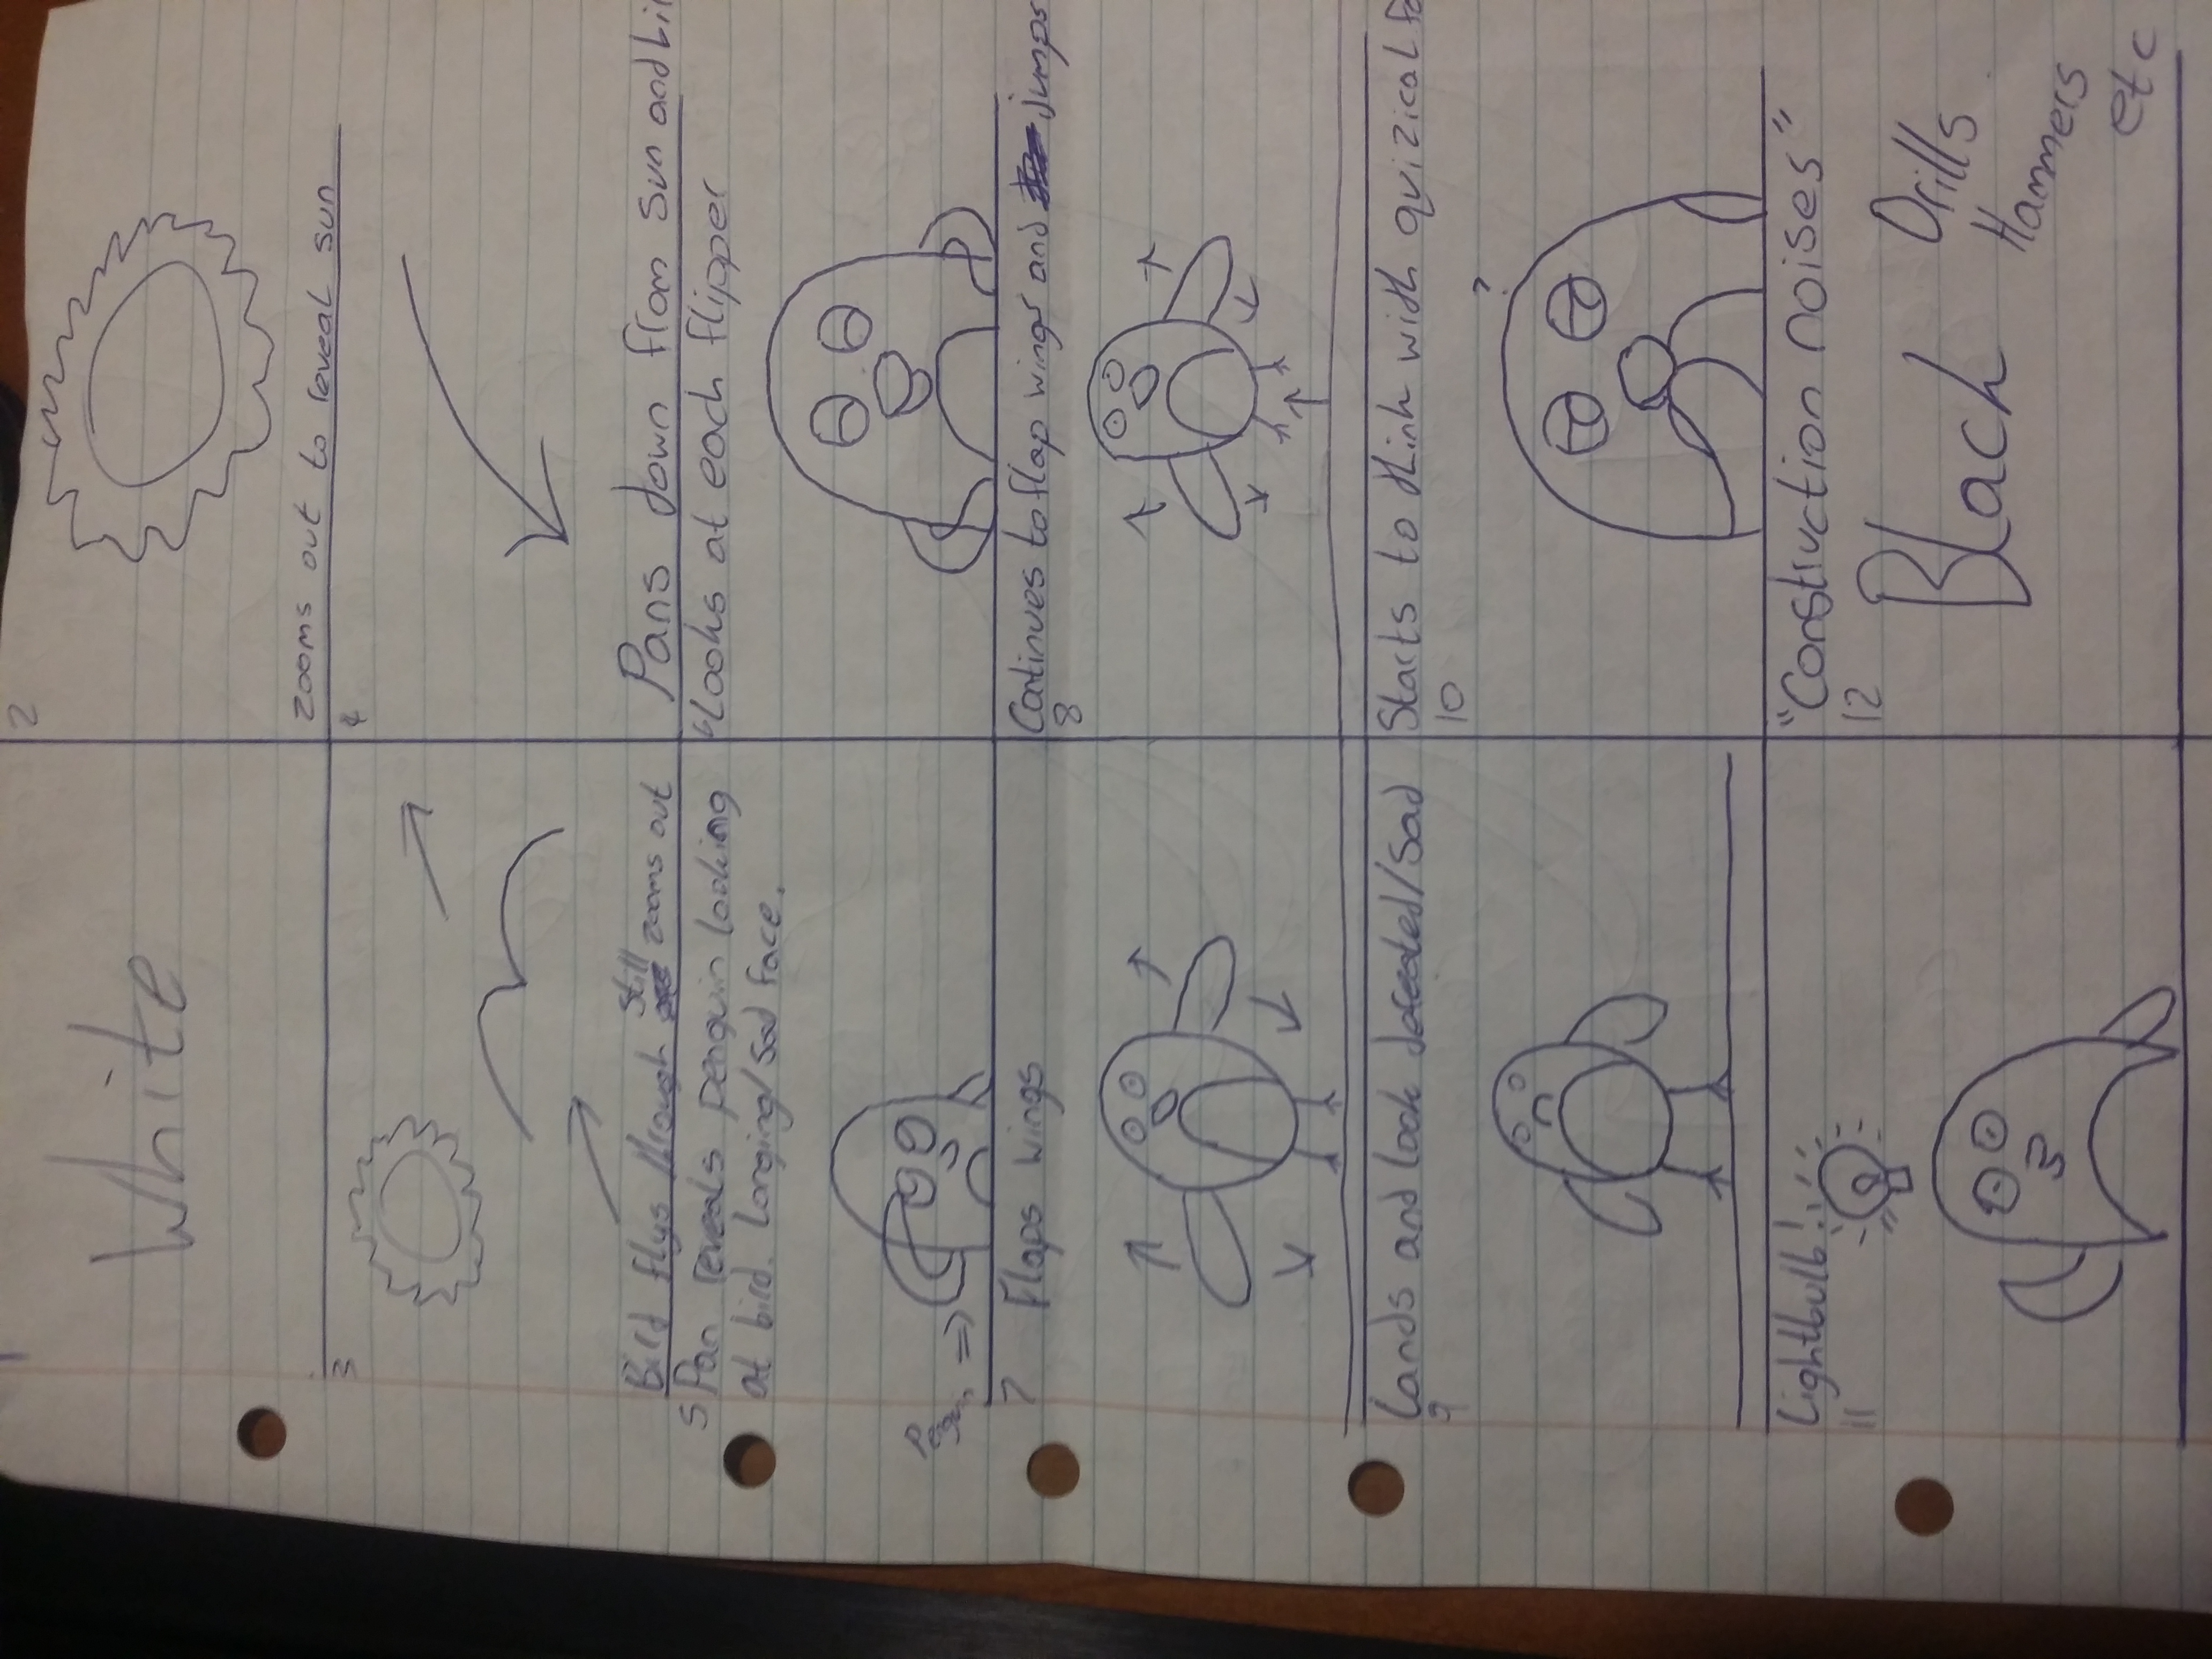 1
White
2
zooms out to reveal sun
3
Bird flys through still zooms out
4
Pans down from sun and bi
5 Pan reveals penguin looking
at bird. Longing/sad face.
Penguin
6 looks at each flipper
7 Flaps wings
Continues to flap wings and jumps
8
Lands and look defeated/sad
9
Starts to think with quizical fa
10
?
Lightbulb!
11
"Construction noises"
12
Black
Drills
Hammers
etc